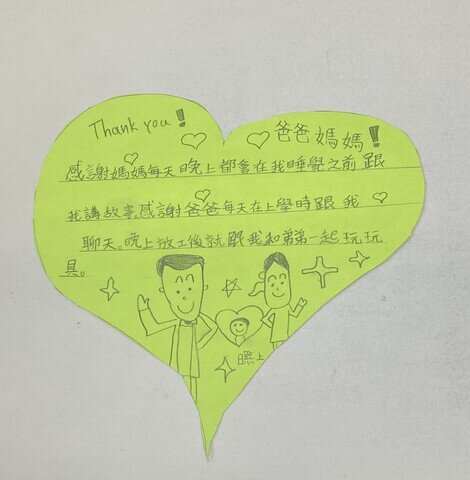 Thank you! 爸爸媽媽!
感謝媽媽每天晚上都會在我睡覺之前跟
我講故事感謝爸爸每天在上學時跟我
聊天。晚上放工後就跟我和弟弟一起玩玩
具。
上